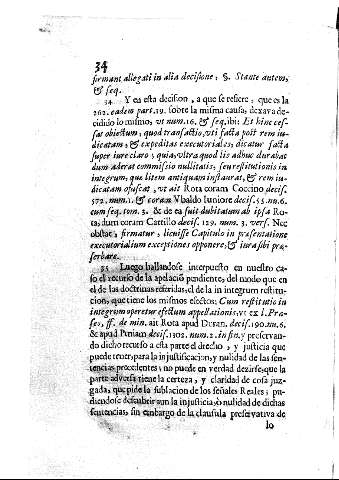 34
firmant allegati in alia decisione, §. Stante autem,
& seq.
34. Y en esta decision, a que se refiere, que es la
262. eadem part. 19. sobre la misma causa, dexava de-
cidido lo mismo, vt num. 16. & seq. ibi: Et hinc ces-
sat obiectum, quod transactio, vti facta post rem iu-
dicatam, & expeditas executoriales; dicatur facta
super iure claro, quia, vltra quod lis adhuc durabat
dum aderat commissio nullitatis, seu restitutionis in
integrum, que litem antiquam instaurat, & rem iu-
dicatam ofuscat, vt ait Rota coram Coccino decis.
572. num. 1. & coram Vbaldo Iuniore decis. 55. nu. 6.
cum seq. tom. 3. & de ea fuit dubitatum ab ipsa Ro-
ta, dum coram Carrillo decis. 129. num. 3. vers. Nec
obstat, firmatur, licuisse Capitulo in præsentatione
executorialium exceptiones opponere, & iura sibi præ-
serbare.
35 Luego hallandose interpuesto en nuestro ca-
so el recurso de la apelació pendiente, del modo que en
el de las doctrinas referidas, el de la in integrum restitu-
cion, que tiene los mismos efectos: Cum restitutio in
integrum operetur effectum appellationis, vt ex l. Præ-
ses, ff. de min. ait Rota apud Duran. decis. 190. nu. 6.
& apud Peniam decis. 1302. num. 2. in fin. y preservan-
do dicho recurso a esta parte el drecho, y justicia que
puede tener, para la injustificacion, y nulidad de las sen-
tencias precedentes; no puede en verdad dezirse, que la
parte adversa tiene la certeza, y claridad de cosa juz-
gada, que pide la sublacion de los señales Reales; pu-
diendose descubrir aun la injusticia, ò nulidad de dichas
sentencias, sin embargo de la clausula preservativa de
lo